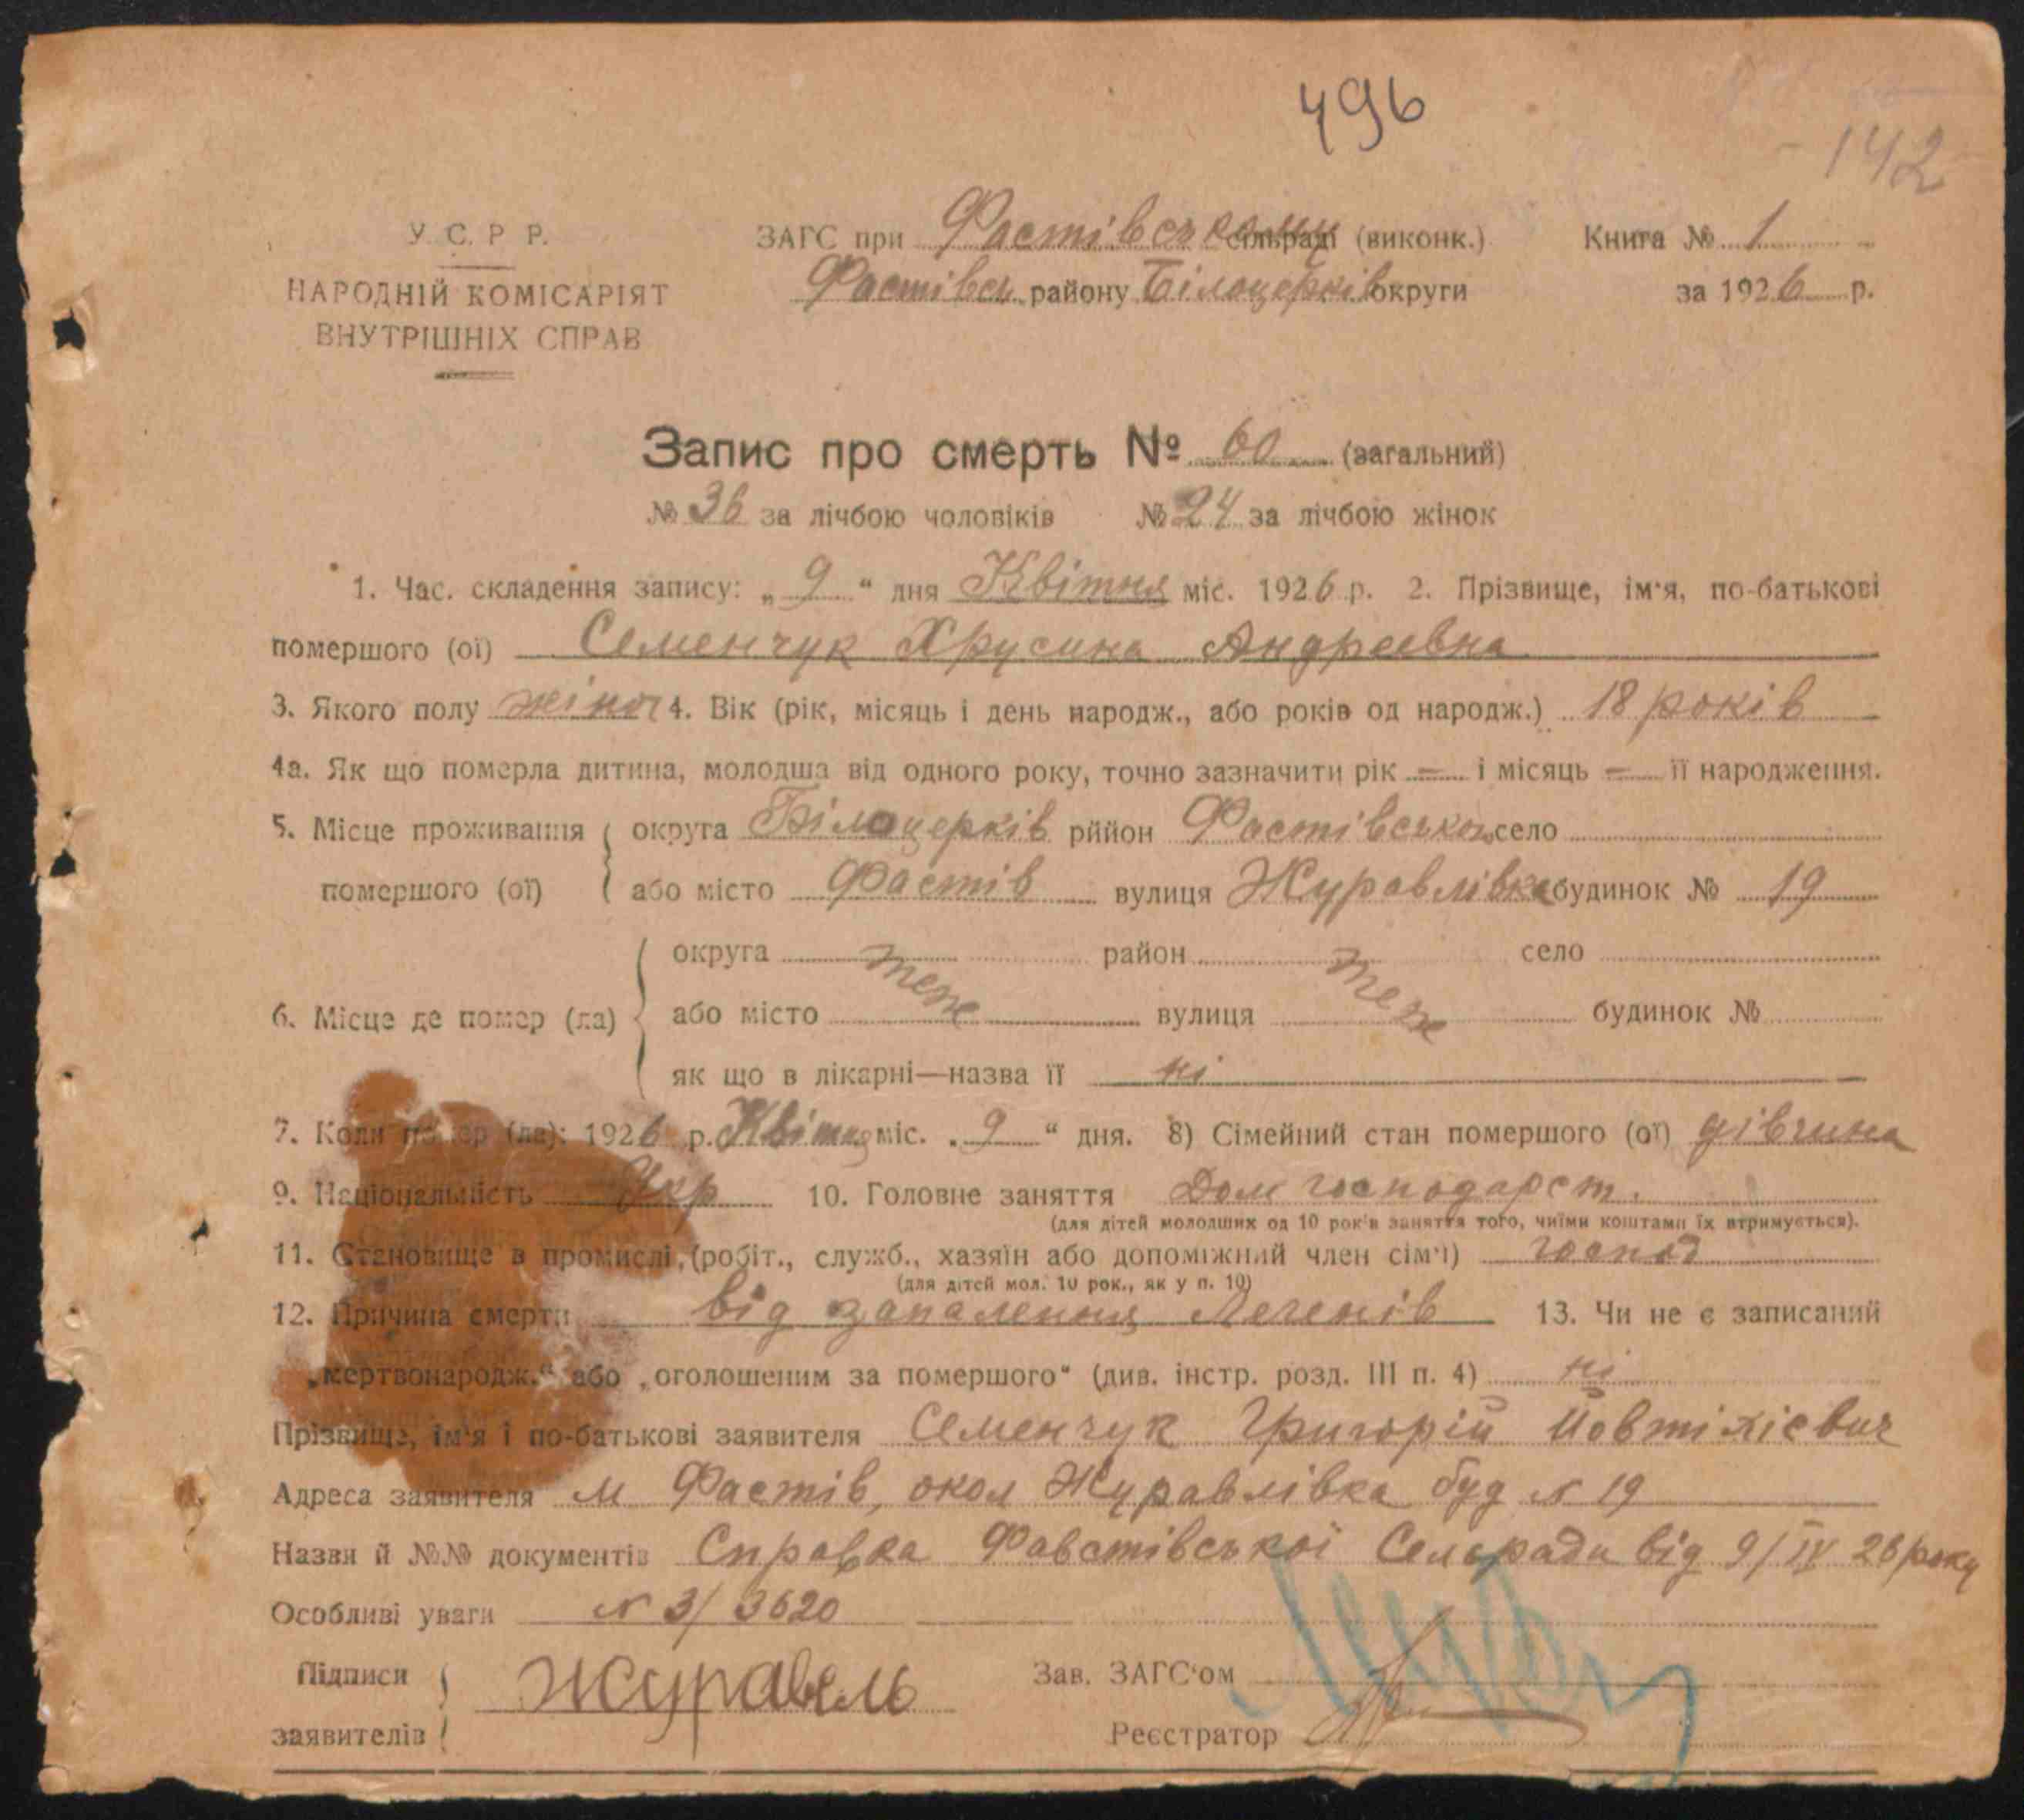 496
142
У. С. Р. Р.
НАРОДНІЙ КОМІСАРІЯТ
ВНУТРІШНІХ СПРАВ
ЗАГС при Фастівському сільраді (виконк.)
Фастівськ. району Білоцерків округи
Книга № 1
за 1926 р.
Запис про смерть № 60 (загальний)
№ 36 за лічбою чоловіків № 24 за лічбою жінок
1. Час. складення запису: „9“ дня Квітня міс. 1926 р. 2. Прізвище, ім'я, по-батькові
помершого (ої) Семенчук Хрусина Андреевна
3. Якого полу жіноч 4. Вік (рік, місяць і день народж., або років од народж.) 18 років
4а. Як що померла дитина, молодша від одного року, точно зазначити рік — і місяць — її народження.
5. Місце проживання округа Білоцерків рййон Фастівськом село
помершого (ої) або місто Фастів вулиця Журавлівка будинок № 19
округа теж район теж село
6. Місце де помер (ла) або місто вулиця будинок №
як що в лікарні—назва її ні
7. Коли помер (ла): 1926 р. Квітня міс. „9“ дня. 8) Сімейний стан помершого (ої) дівчина
9. Національність Укр 10. Головне заняття Дом господарст.
(для дітей молодших од 10 рок'в заняття того, чиїми коштами їх втримується).
11. Становище в промислі, (робіт., служб., хазяїн або допоміжний член сім'ї) господ
(для дітей мол. 10 рок., як у п. 10)
12. Причина смерти від запалення Легенів 13. Чи не є записаний
„мертвонародж.“ або „оголошеним за помершого“ (див. інстр. розд. III п. 4) ні
Прізвище, ім'я і по-батькові заявителя Семенчук Григорій Йовтихієвич
Адреса заявителя м Фастів, окол Журавлівка буд № 19
Назви й №№ документів Справка Фавстівської Сельради від 9/IV 26 року
Особливі уваги № 3/3620
Підписи Журавель Зав. ЗАГС'ом
заявителів Реєстратор